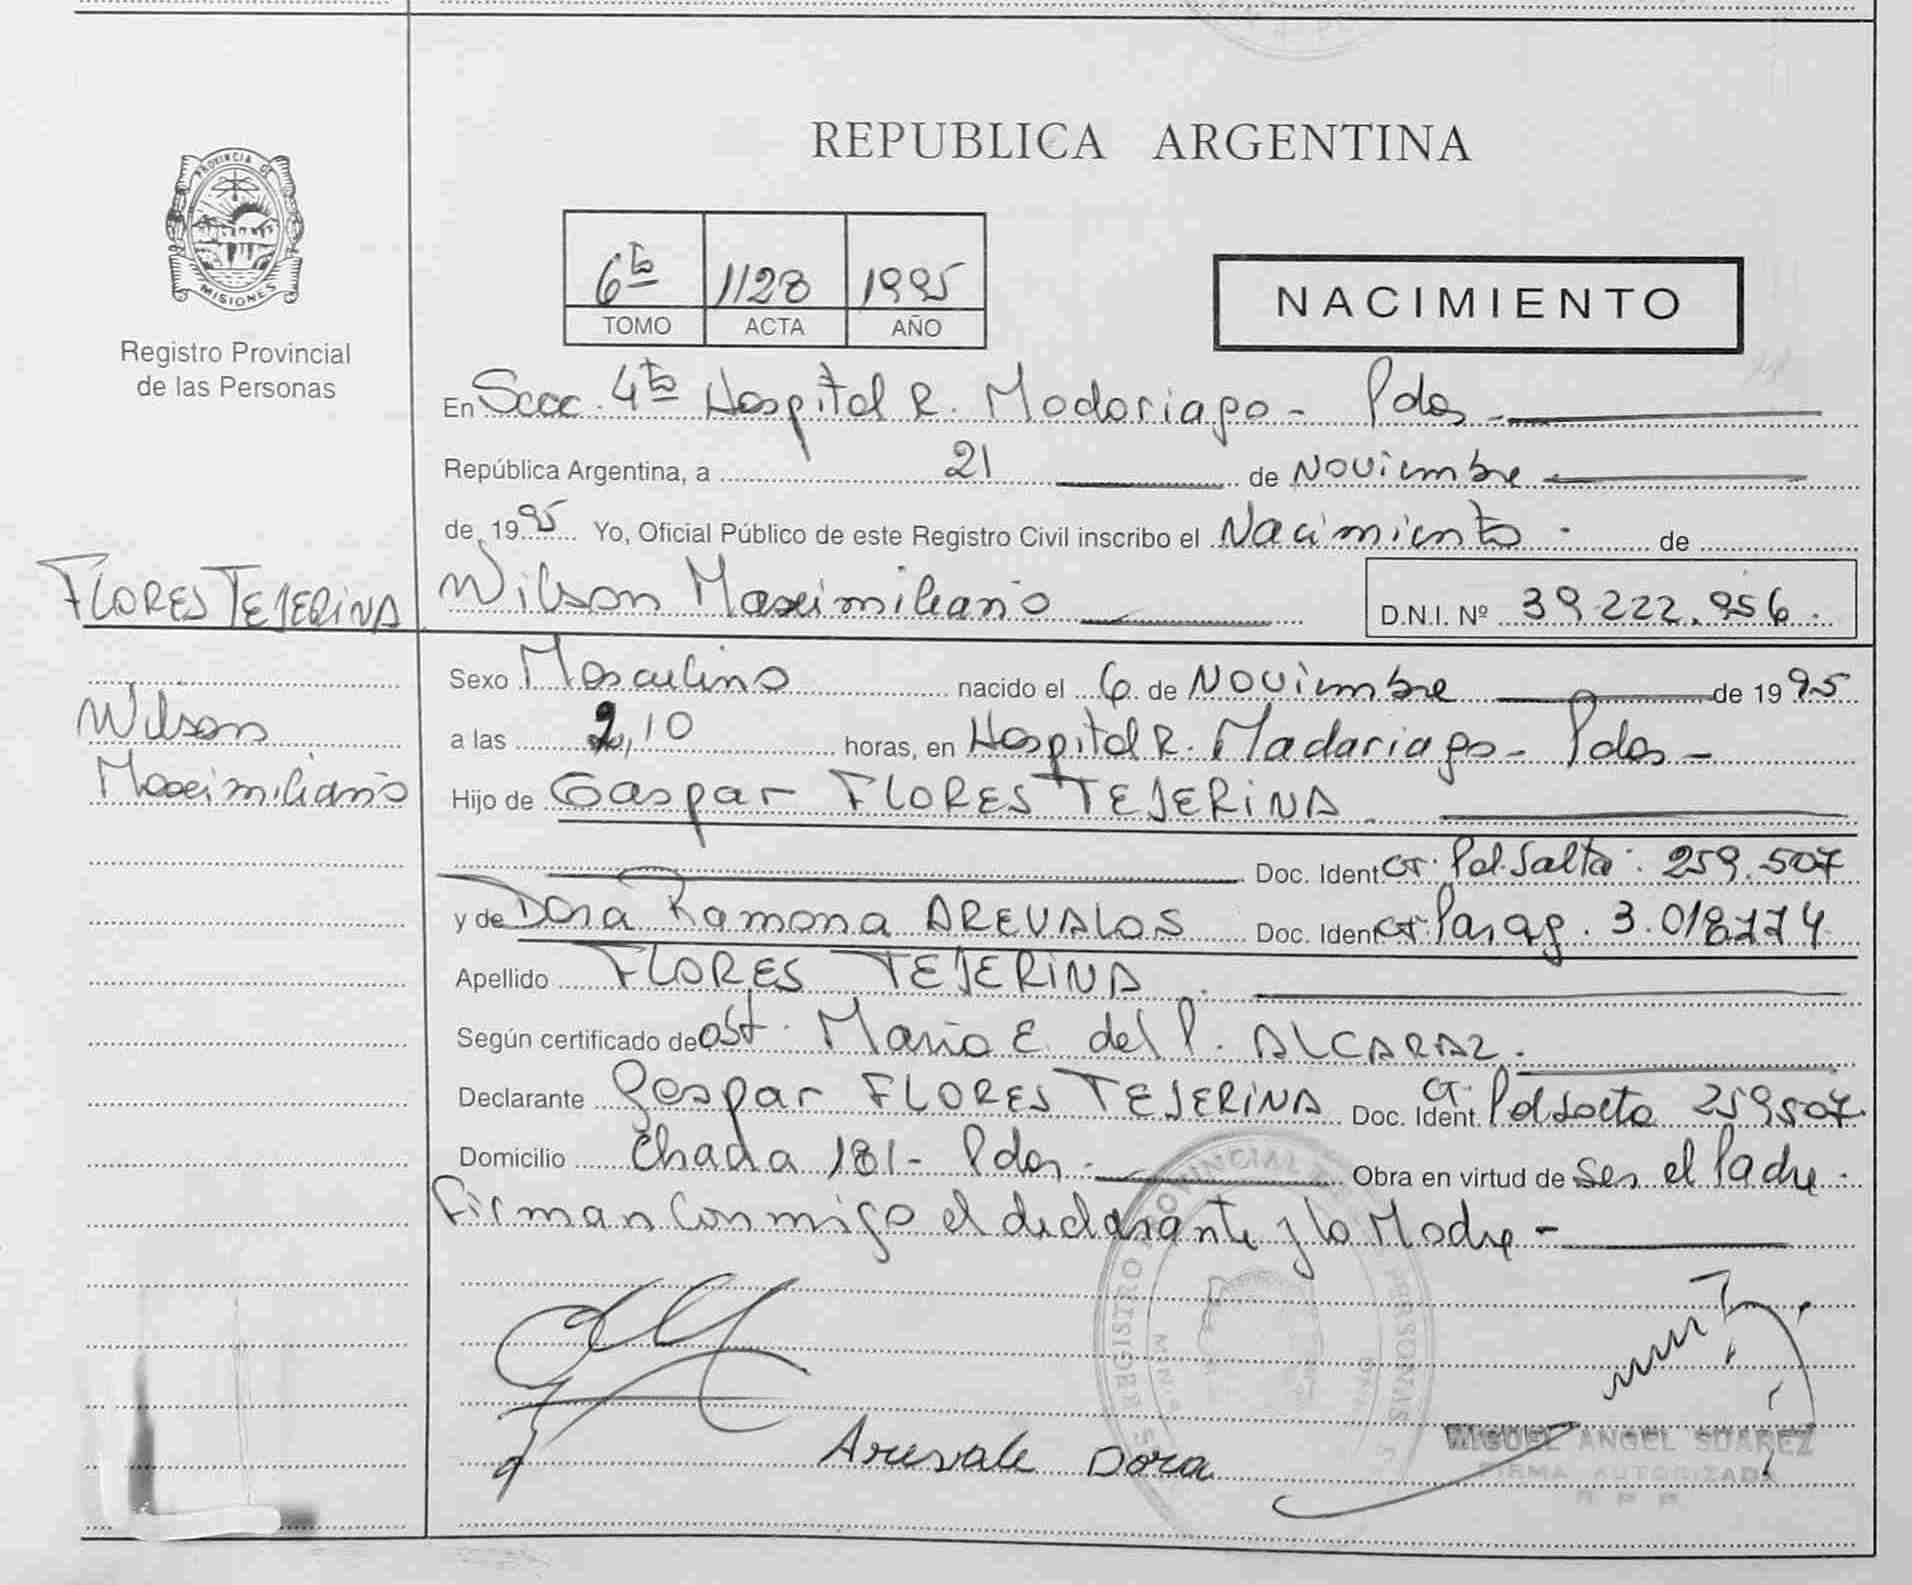 REPUBLICA ARGENTINA
PROVINCIA DE
MISIONES
Registro Provincial
de las Personas
6to 1128 1995
TOMO ACTA AÑO
NACIMIENTO
En Secc. 4ta Hospital R. Madariaga - Pdas -
República Argentina, a 21 de Noviembre
de 1995 Yo, Oficial Público de este Registro Civil inscribo el Nacimiento - de
FLORES TEJERINA
Wilson Maximiliano D.N.I. Nº 39.222.956.
Sexo Masculino nacido el 6 de Noviembre de 1995
Wilson
Maximiliano
a las 2,10 horas, en Hospital R. Madariaga - Pdas -
Hijo de Gaspar FLORES TEJERINA
Doc. Ident. CI. Pol. Salta: 259.507
y de Dora Ramona AREVALOS Doc. Ident. CI Parag. 3.018774
Apellido FLORES TEJERINA
Según certificado de obst. Maria E. del P. ALCARAZ.
Declarante Gaspar FLORES TEJERINA Doc. Ident. CI. Pol Salta 259507.
Domicilio Chada 181 - Pdas - Obra en virtud de ser el Padre.
Firman conmigo el declarante y la Madre -
REGISTRO PROVINCIAL DE PERSONAS
Arevalo Dora
MIGUEL ANGEL SUAREZ
FIRMA AUTORIZADA
R P P